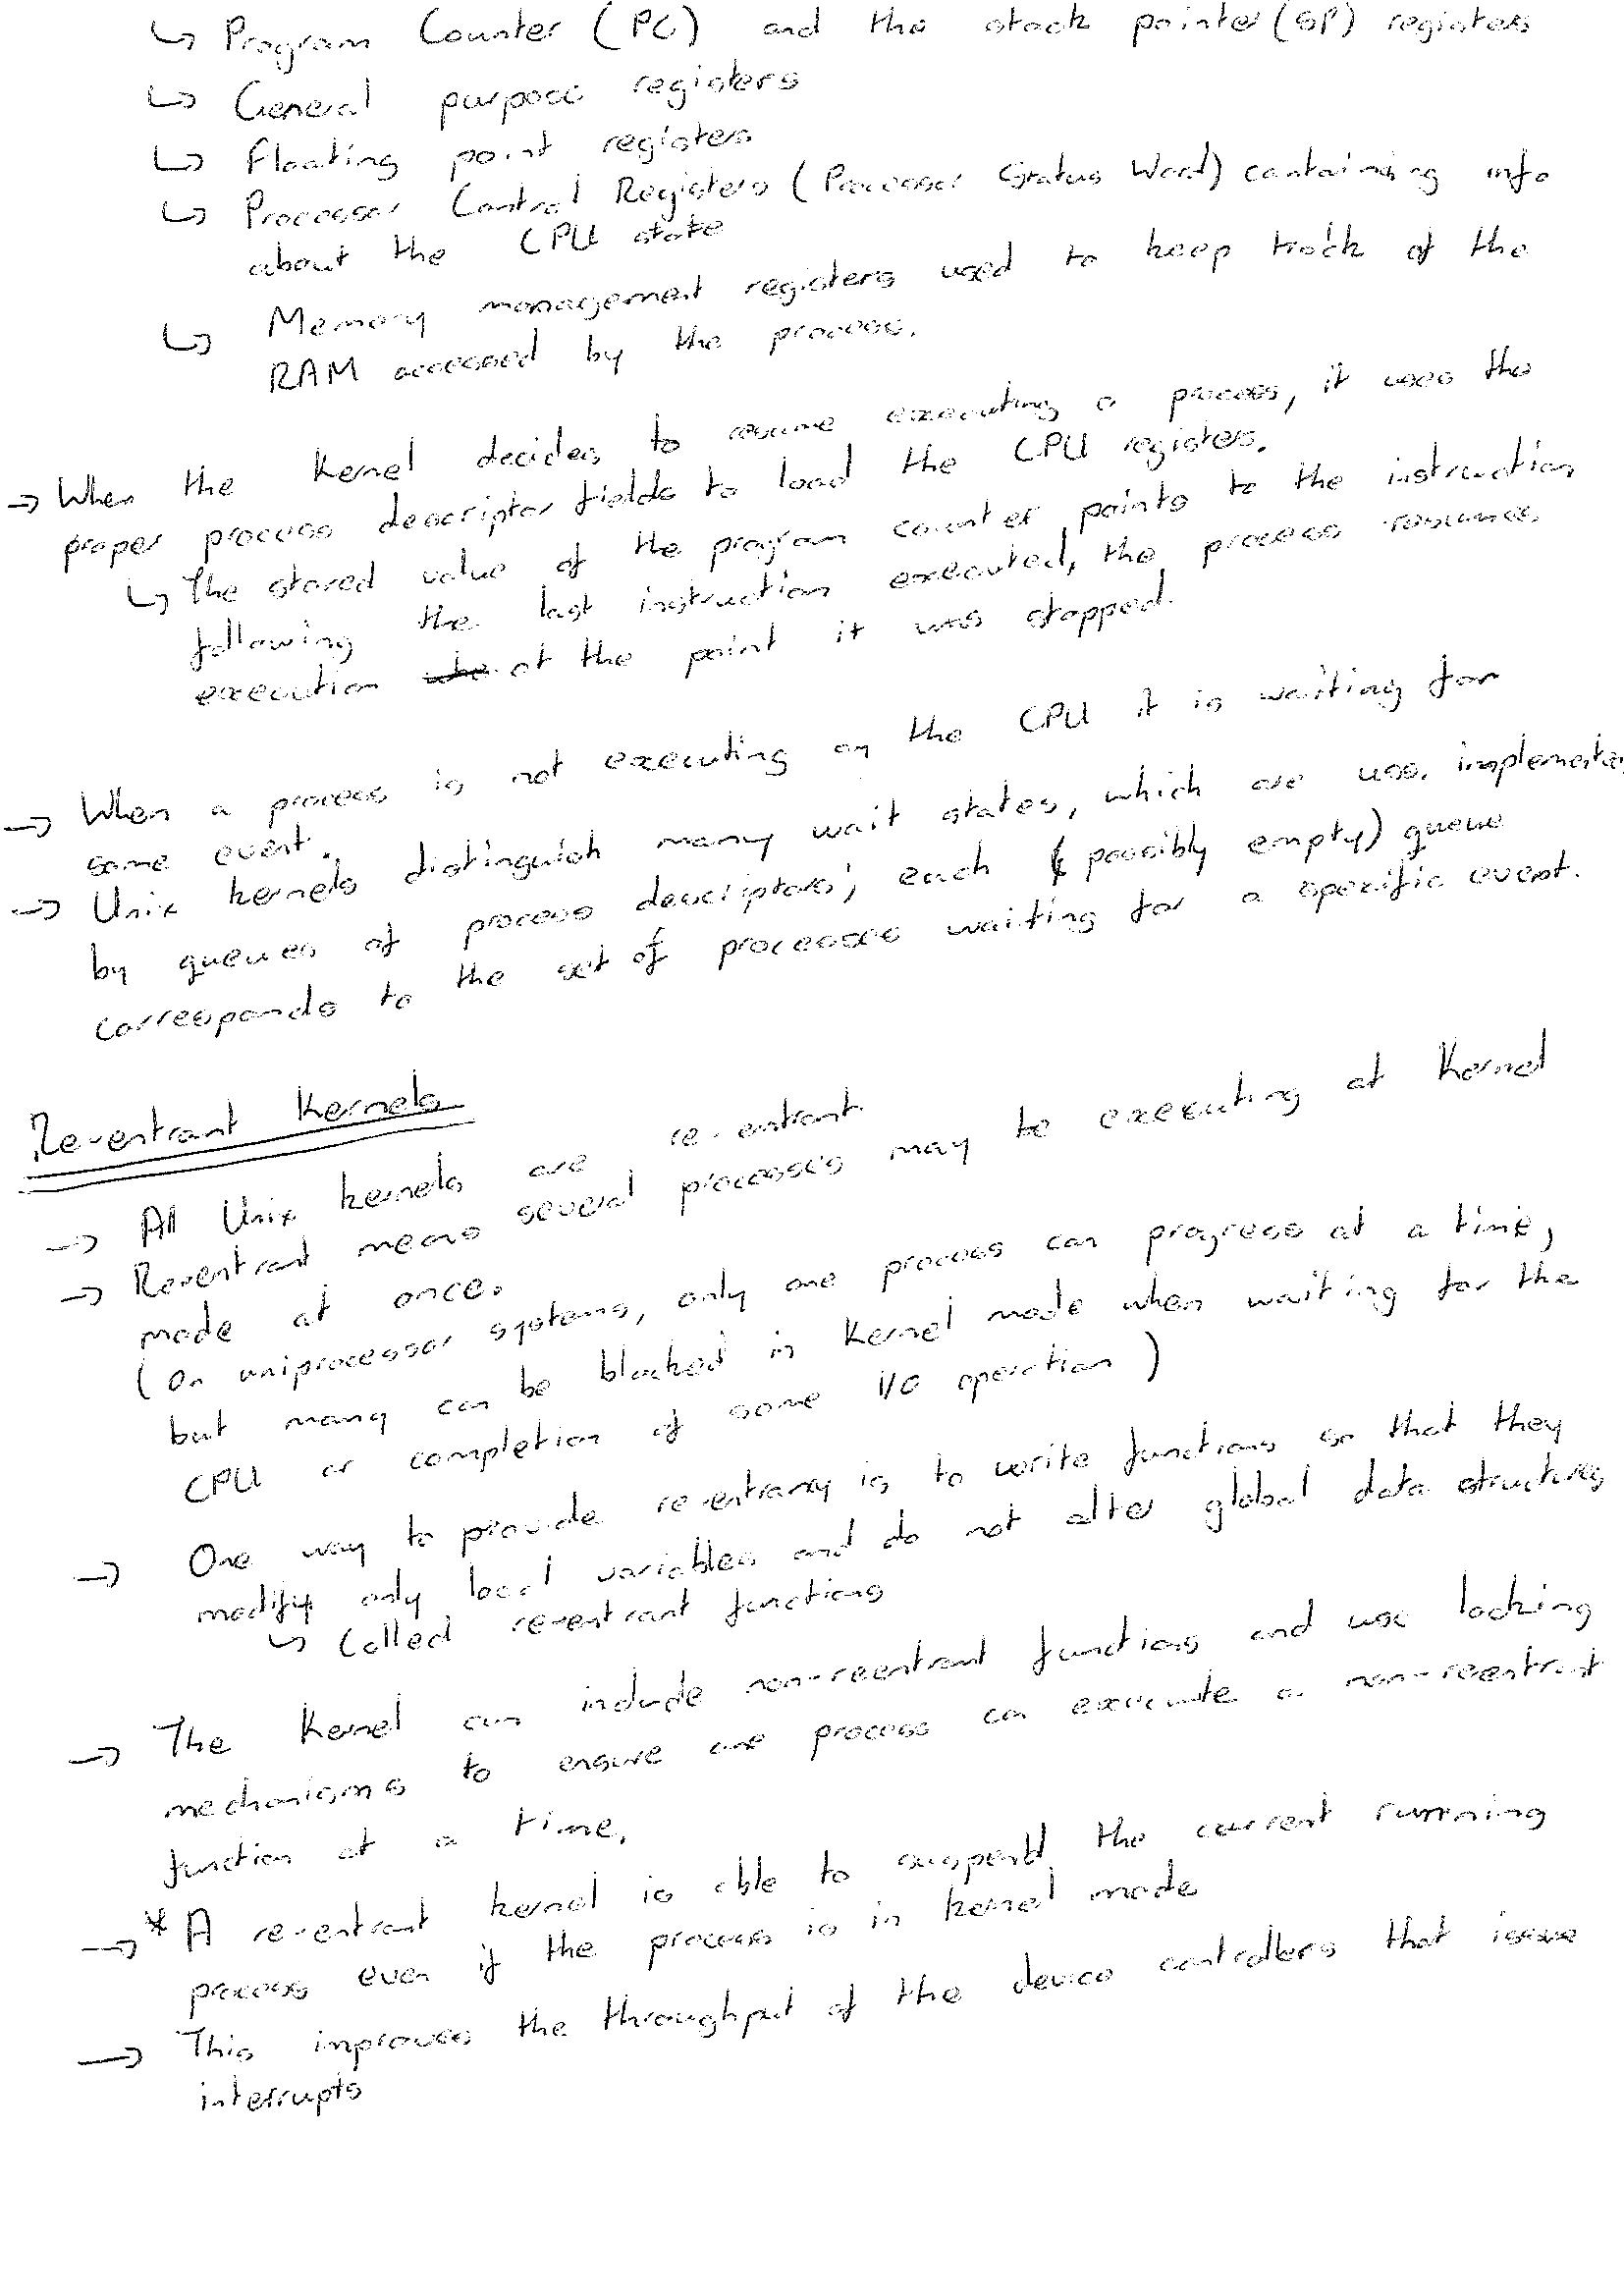 ↳ Program Counter (PC) and the stack pointer (SP) registers
↳ General purpose registers
↳ Floating point registers
↳ Processor Control Registers (Processor Status Word) containing info
about the CPU state
↳ Memory management registers used to keep track of the
RAM accessed by the process.
→ When the kernel decides to resume executing a process, it uses the
proper process descriptor fields to load the CPU registers.
↳ The stored value of the program counter points to the instruction
following the last instruction executed, the process resumes
execution at the point it was stopped.
→ When a process is not executing on the CPU it is waiting for
some event.
→ Unix kernels distinguish many wait states, which are implemented
by queues of process descriptors; each (possibly empty) queue
corresponds to the set of processes waiting for a specific event.
Re-entrant Kernels
→ All Unix kernels are re-entrant
→ Re-entrant means several processes may be executing at Kernel
mode at once.
(On uniprocessor systems, only one process can progress at a time,
but many can be blocked in kernel mode when waiting for the
CPU or completion of some I/O operation)
→ One way to provide re-entrancy is to write functions so that they
modify only local variables and do not alter global data structures
↳ Called re-entrant functions
→ The Kernel can include non-reentrant functions and use locking
mechanisms to ensure one process can execute a non-reentrant
function at a time.
→ * A re-entrant kernel is able to suspend the current running
process even if the process is in kernel mode
→ This improves the throughput of the device controllers that issue
interrupts